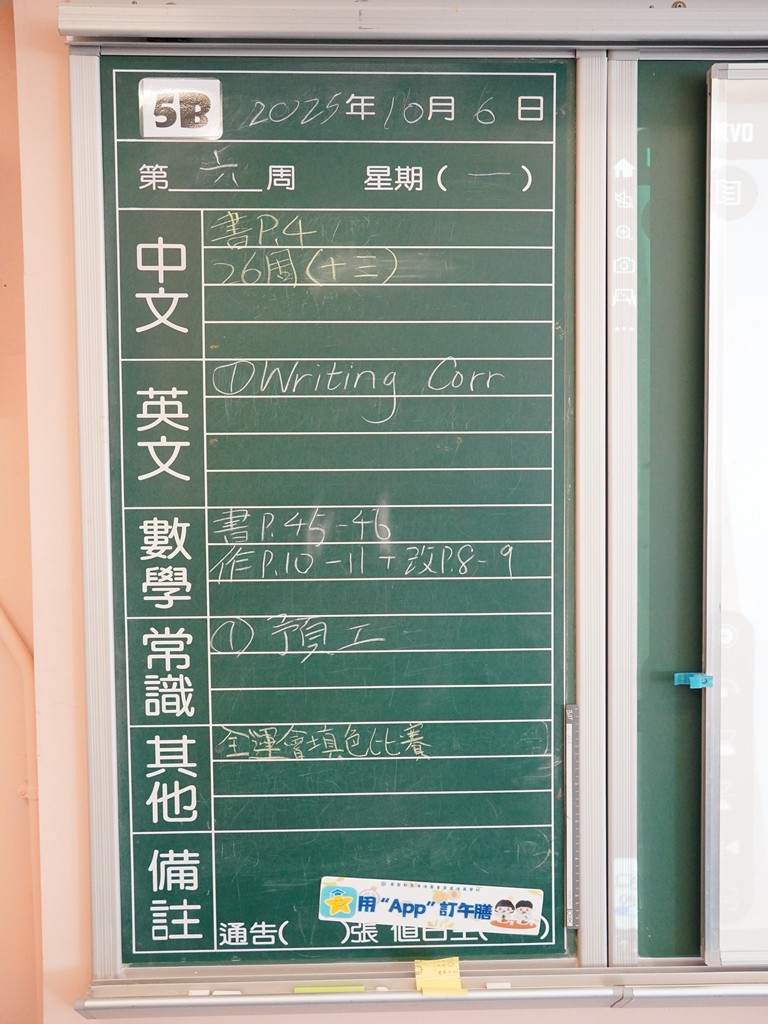 5B 2025年10月6日
第六周 星期(一)
中文
書P.4
26周(十三)
英文
①Writing Corr
數學
書P.45-46
作P.10-11+改P.8-9
常識
①預工
其他
全運會填色比賽
備註
用“App”訂午膳
通告( )張 值日生( )
EVO